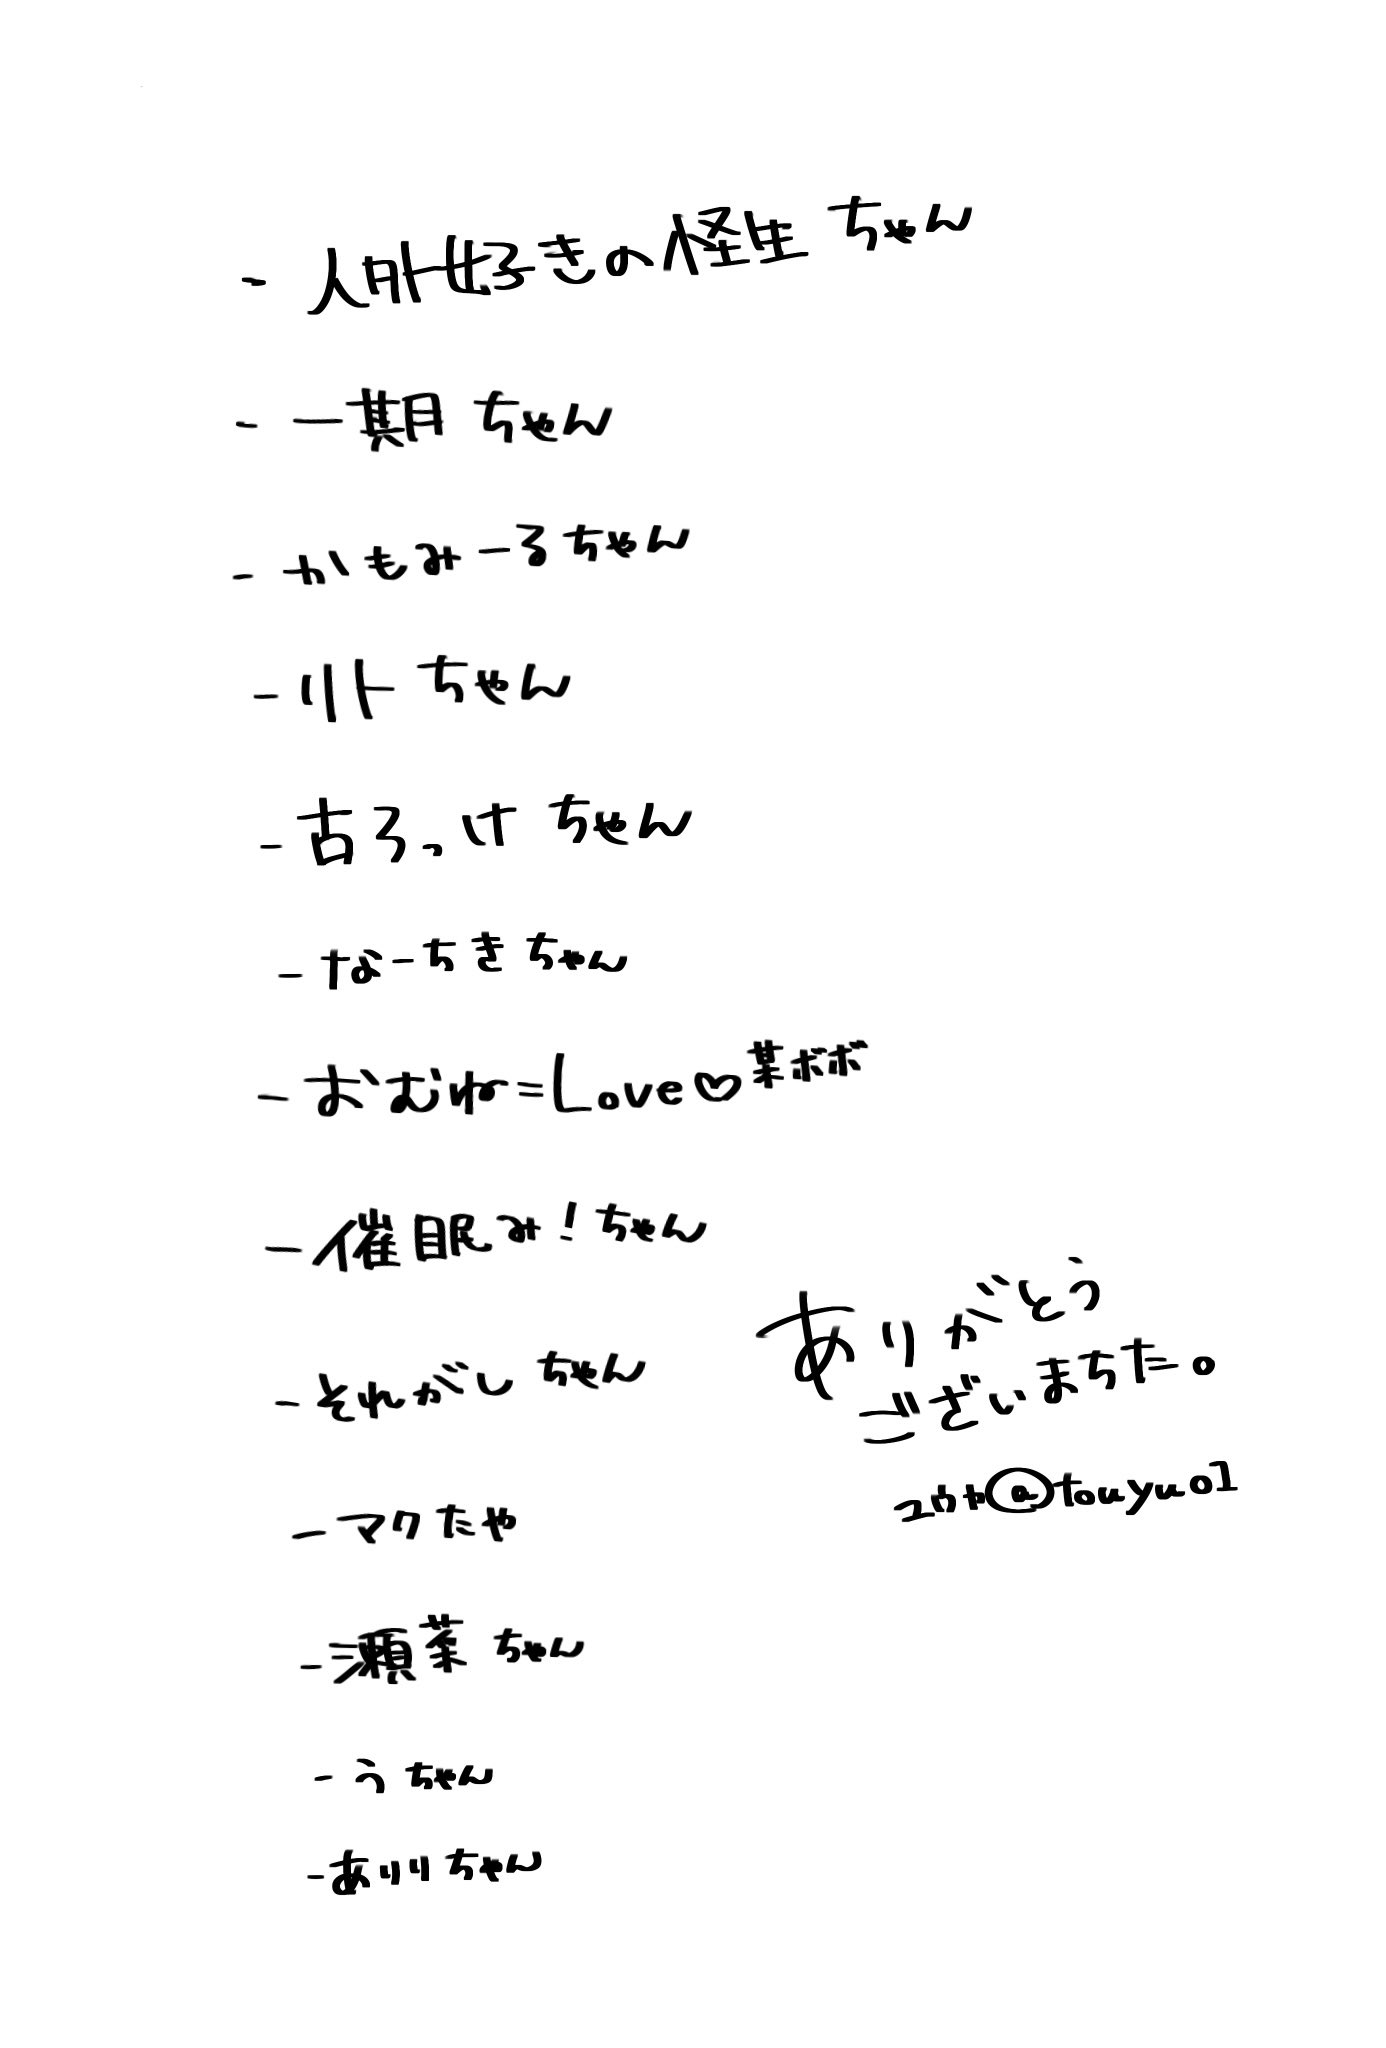 - 人外好きの怪生ちゃん
- 一期ちゃん
- かもみーるちゃん
- リトちゃん
- 古ろっけちゃん
- なーちきちゃん
- おむね=Love♡菜ボボ
- 催眠み!ちゃん
- それがしちゃん
- マクたや
- 瀬菜ちゃん
- うちゃん
- あリリちゃん
ありがとう
ございまちた。
ユウヤ@touyu01